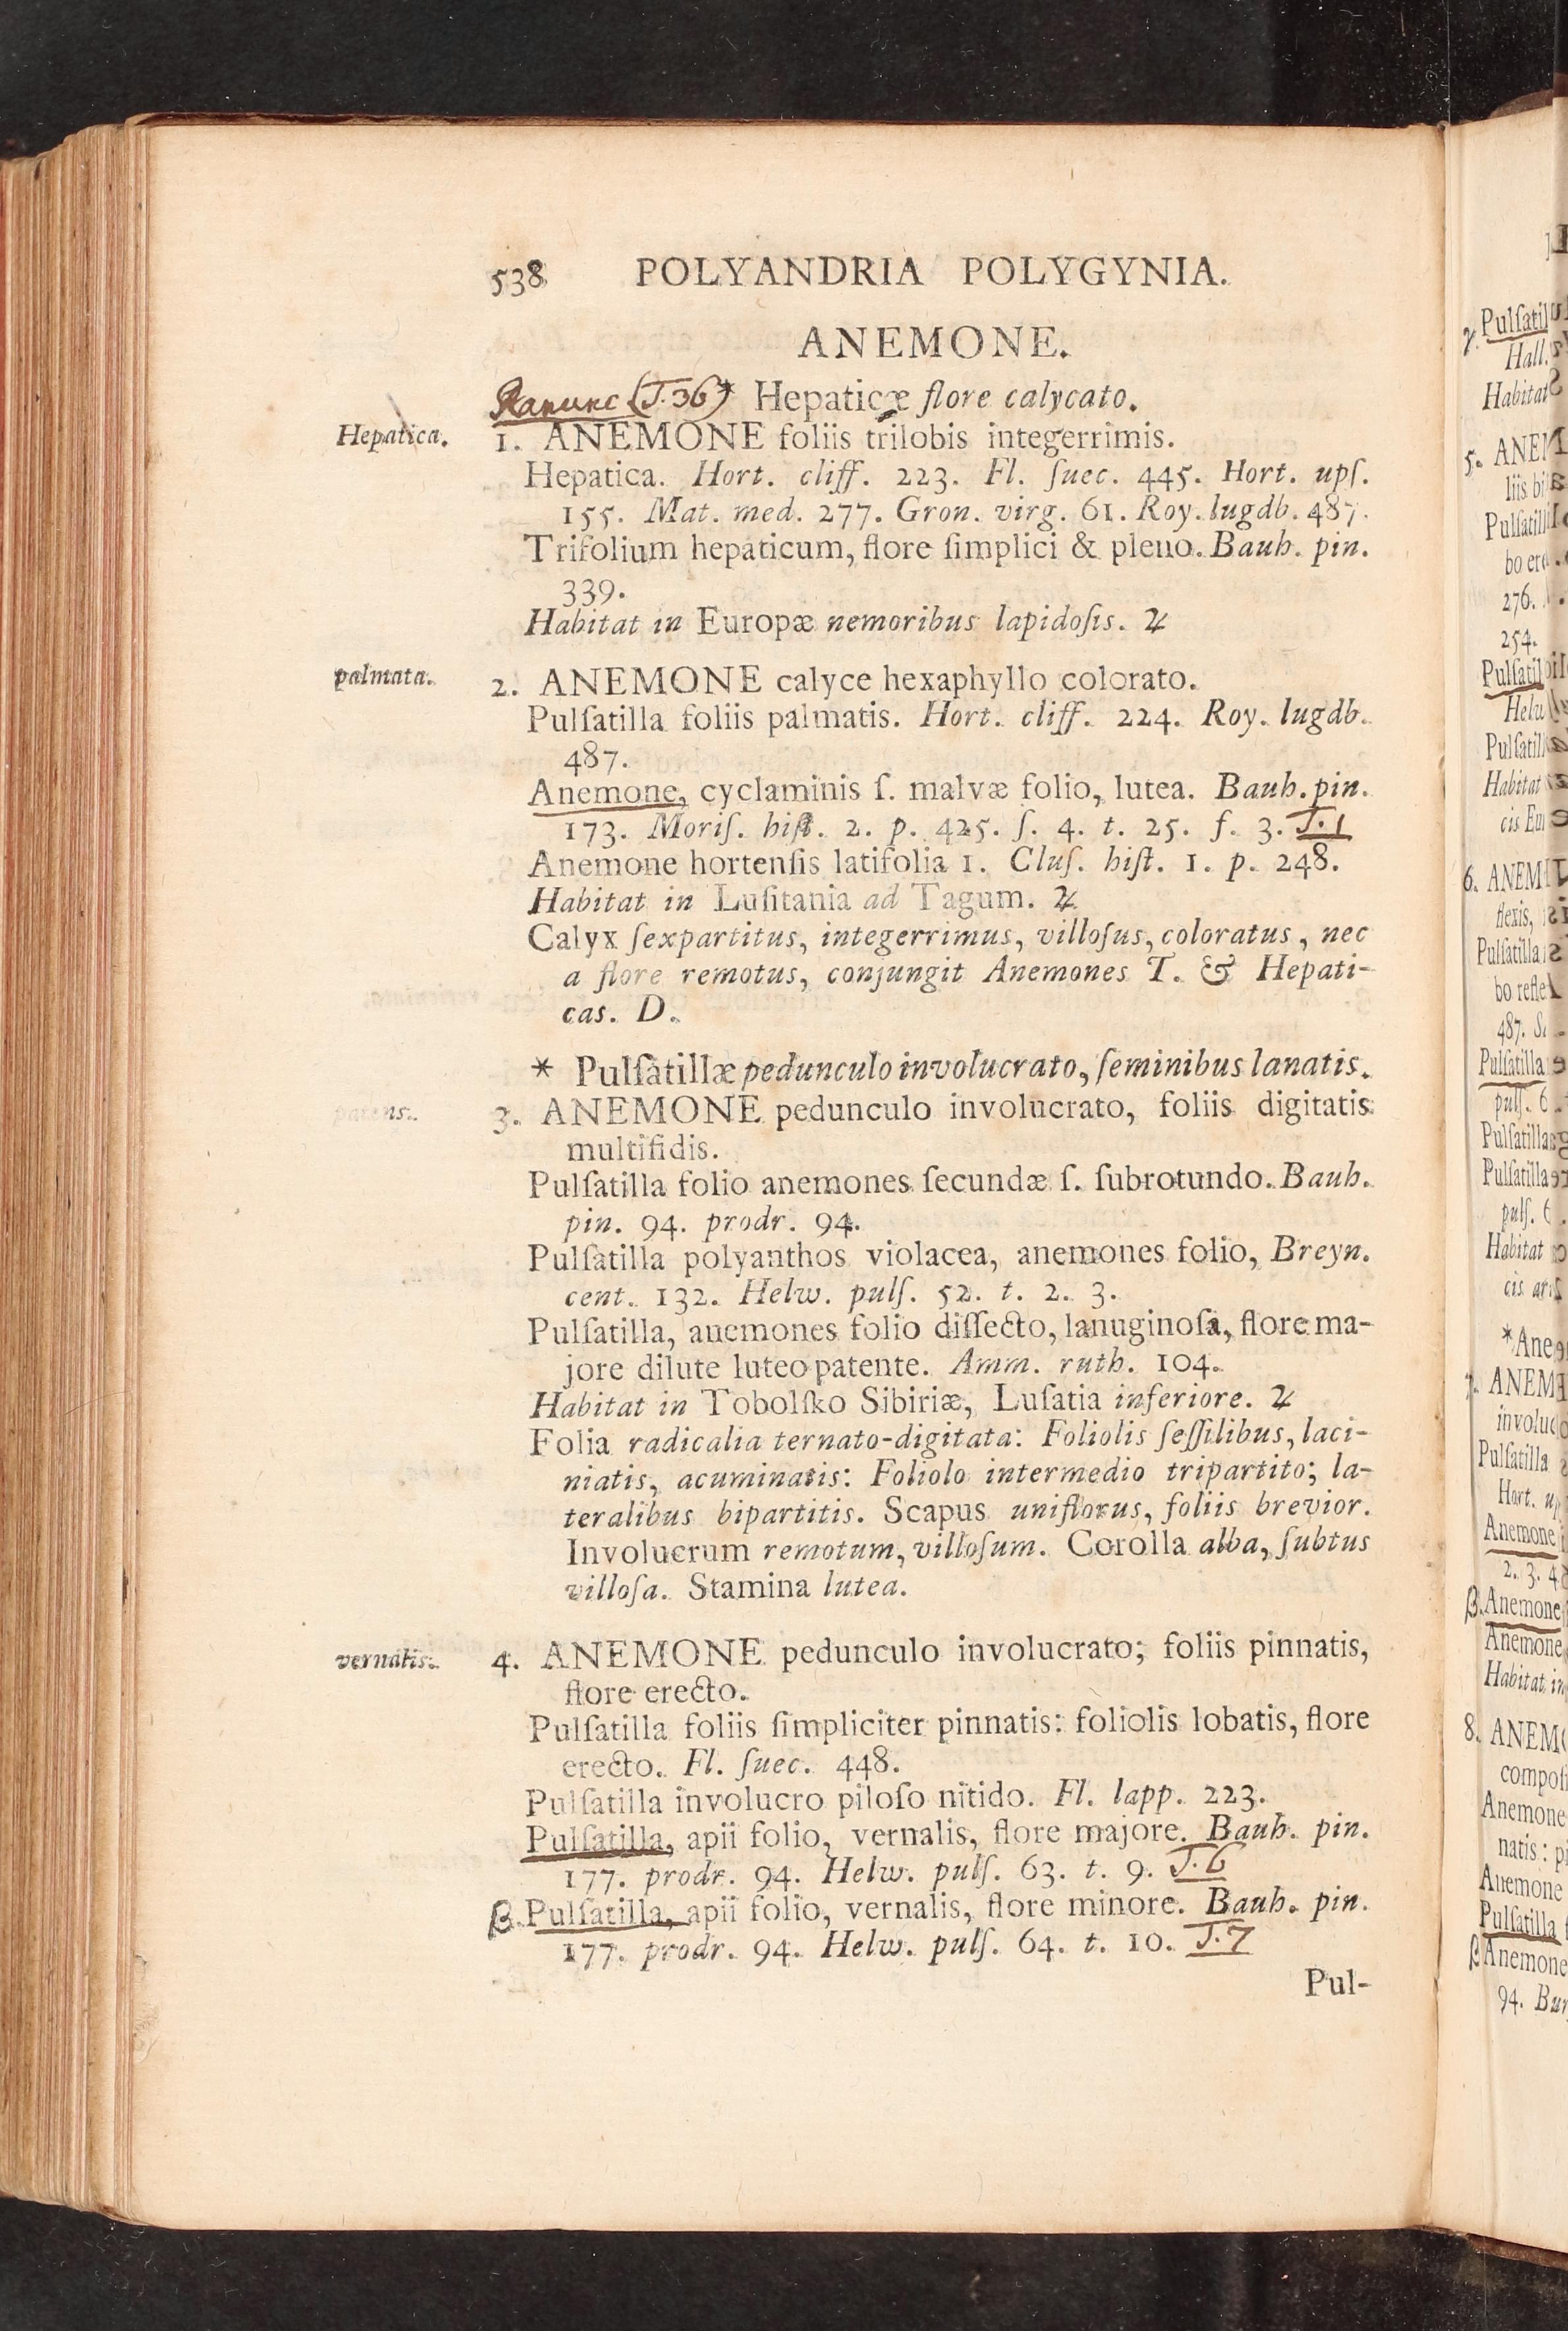 538 POLYANDRIA POLYGYNIA.
ANEMONE.
Ranunc (T. 36) * Hepaticæ flore calycato.
Hepatica. 1. ANEMONE foliis trilobis integerrimis.
Hepatica. Hort. cliff. 223. Fl. ſuec. 445. Hort. upſ.
155. Mat. med. 277. Gron. virg. 61. Roy. lugdb. 487.
Trifolium hepaticum, flore ſimplici & pleno. Bauh. pin.
339.
Habitat in Europæ nemoribus lapidoſis. ♃
palmata. 2. ANEMONE calyce hexaphyllo colorato.
Pulſatilla foliis palmatis. Hort. cliff. 224. Roy. lugdb.
487.
Anemone, cyclaminis ſ. malvæ folio, lutea. Bauh. pin.
173. Moriſ. hiſt. 2. p. 425. ſ. 4. t. 25. f. 3. T. 1
Anemone hortenſis latifolia 1. Cluſ. hiſt. 1. p. 248.
Habitat in Luſitania ad Tagum. ♃
Calyx ſexpartitus, integerrimus, villoſus, coloratus, nec
a flore remotus, conjungit Anemones T. & Hepati-
cas. D.
* Pulſatillæ pedunculo involucrato, ſeminibus lanatis.
patens. 3. ANEMONE pedunculo involucrato, foliis digitatis
multifidis.
Pulſatilla folio anemones ſecundæ ſ. ſubrotundo. Bauh.
pin. 94. prodr. 94.
Pulſatilla polyanthos violacea, anemones folio, Breyn.
cent. 132. Helw. pulſ. 52. t. 2. 3.
Pulſatilla, anemones folio diſſecto, lanuginoſa, flore ma-
jore dilute luteo patente. Amm. ruth. 104.
Habitat in Tobolſko Sibiriæ, Luſatia inferiore. ♃
Folia radicalia ternato-digitata: Foliolis ſeſſilibus, laci-
niatis, acuminatis: Foliolo intermedio tripartito; la-
teralibus bipartitis. Scapus uniflorus, foliis brevior.
Involucrum remotum, villoſum. Corolla alba, ſubtus
villoſa. Stamina lutea.
vernalis. 4. ANEMONE pedunculo involucrato; foliis pinnatis,
flore erecto.
Pulſatilla foliis ſimpliciter pinnatis: foliolis lobatis, flore
erecto. Fl. ſuec. 448.
Pulſatilla involucro piloſo nitido. Fl. lapp. 223.
Pulſatilla, apii folio, vernalis, flore majore. Bauh. pin.
177. prodr. 94. Helw. pulſ. 63. t. 9. T. 6
β. Pulſatilla, apii folio, vernalis, flore minore. Bauh. pin.
177. prodr. 94. Helw. pulſ. 64. t. 10. T. 7
Pul-
Hall.
Habitat
5. ANEM
276.
254.
Habitat
6. ANEM
flexis,
Pulſatilla
487.
Pulſatilla
pulſ. 6
Pulſatilla
Pulſatilla
pulſ. 6
Habitat
7. ANEM
Pulſatilla
Hort.
Anemone
2. 3.
β. Anemone
Anemone
Habitat in
8. ANEM
Anemone
natis:
Anemone
Pulſatilla
β Anemone
94.